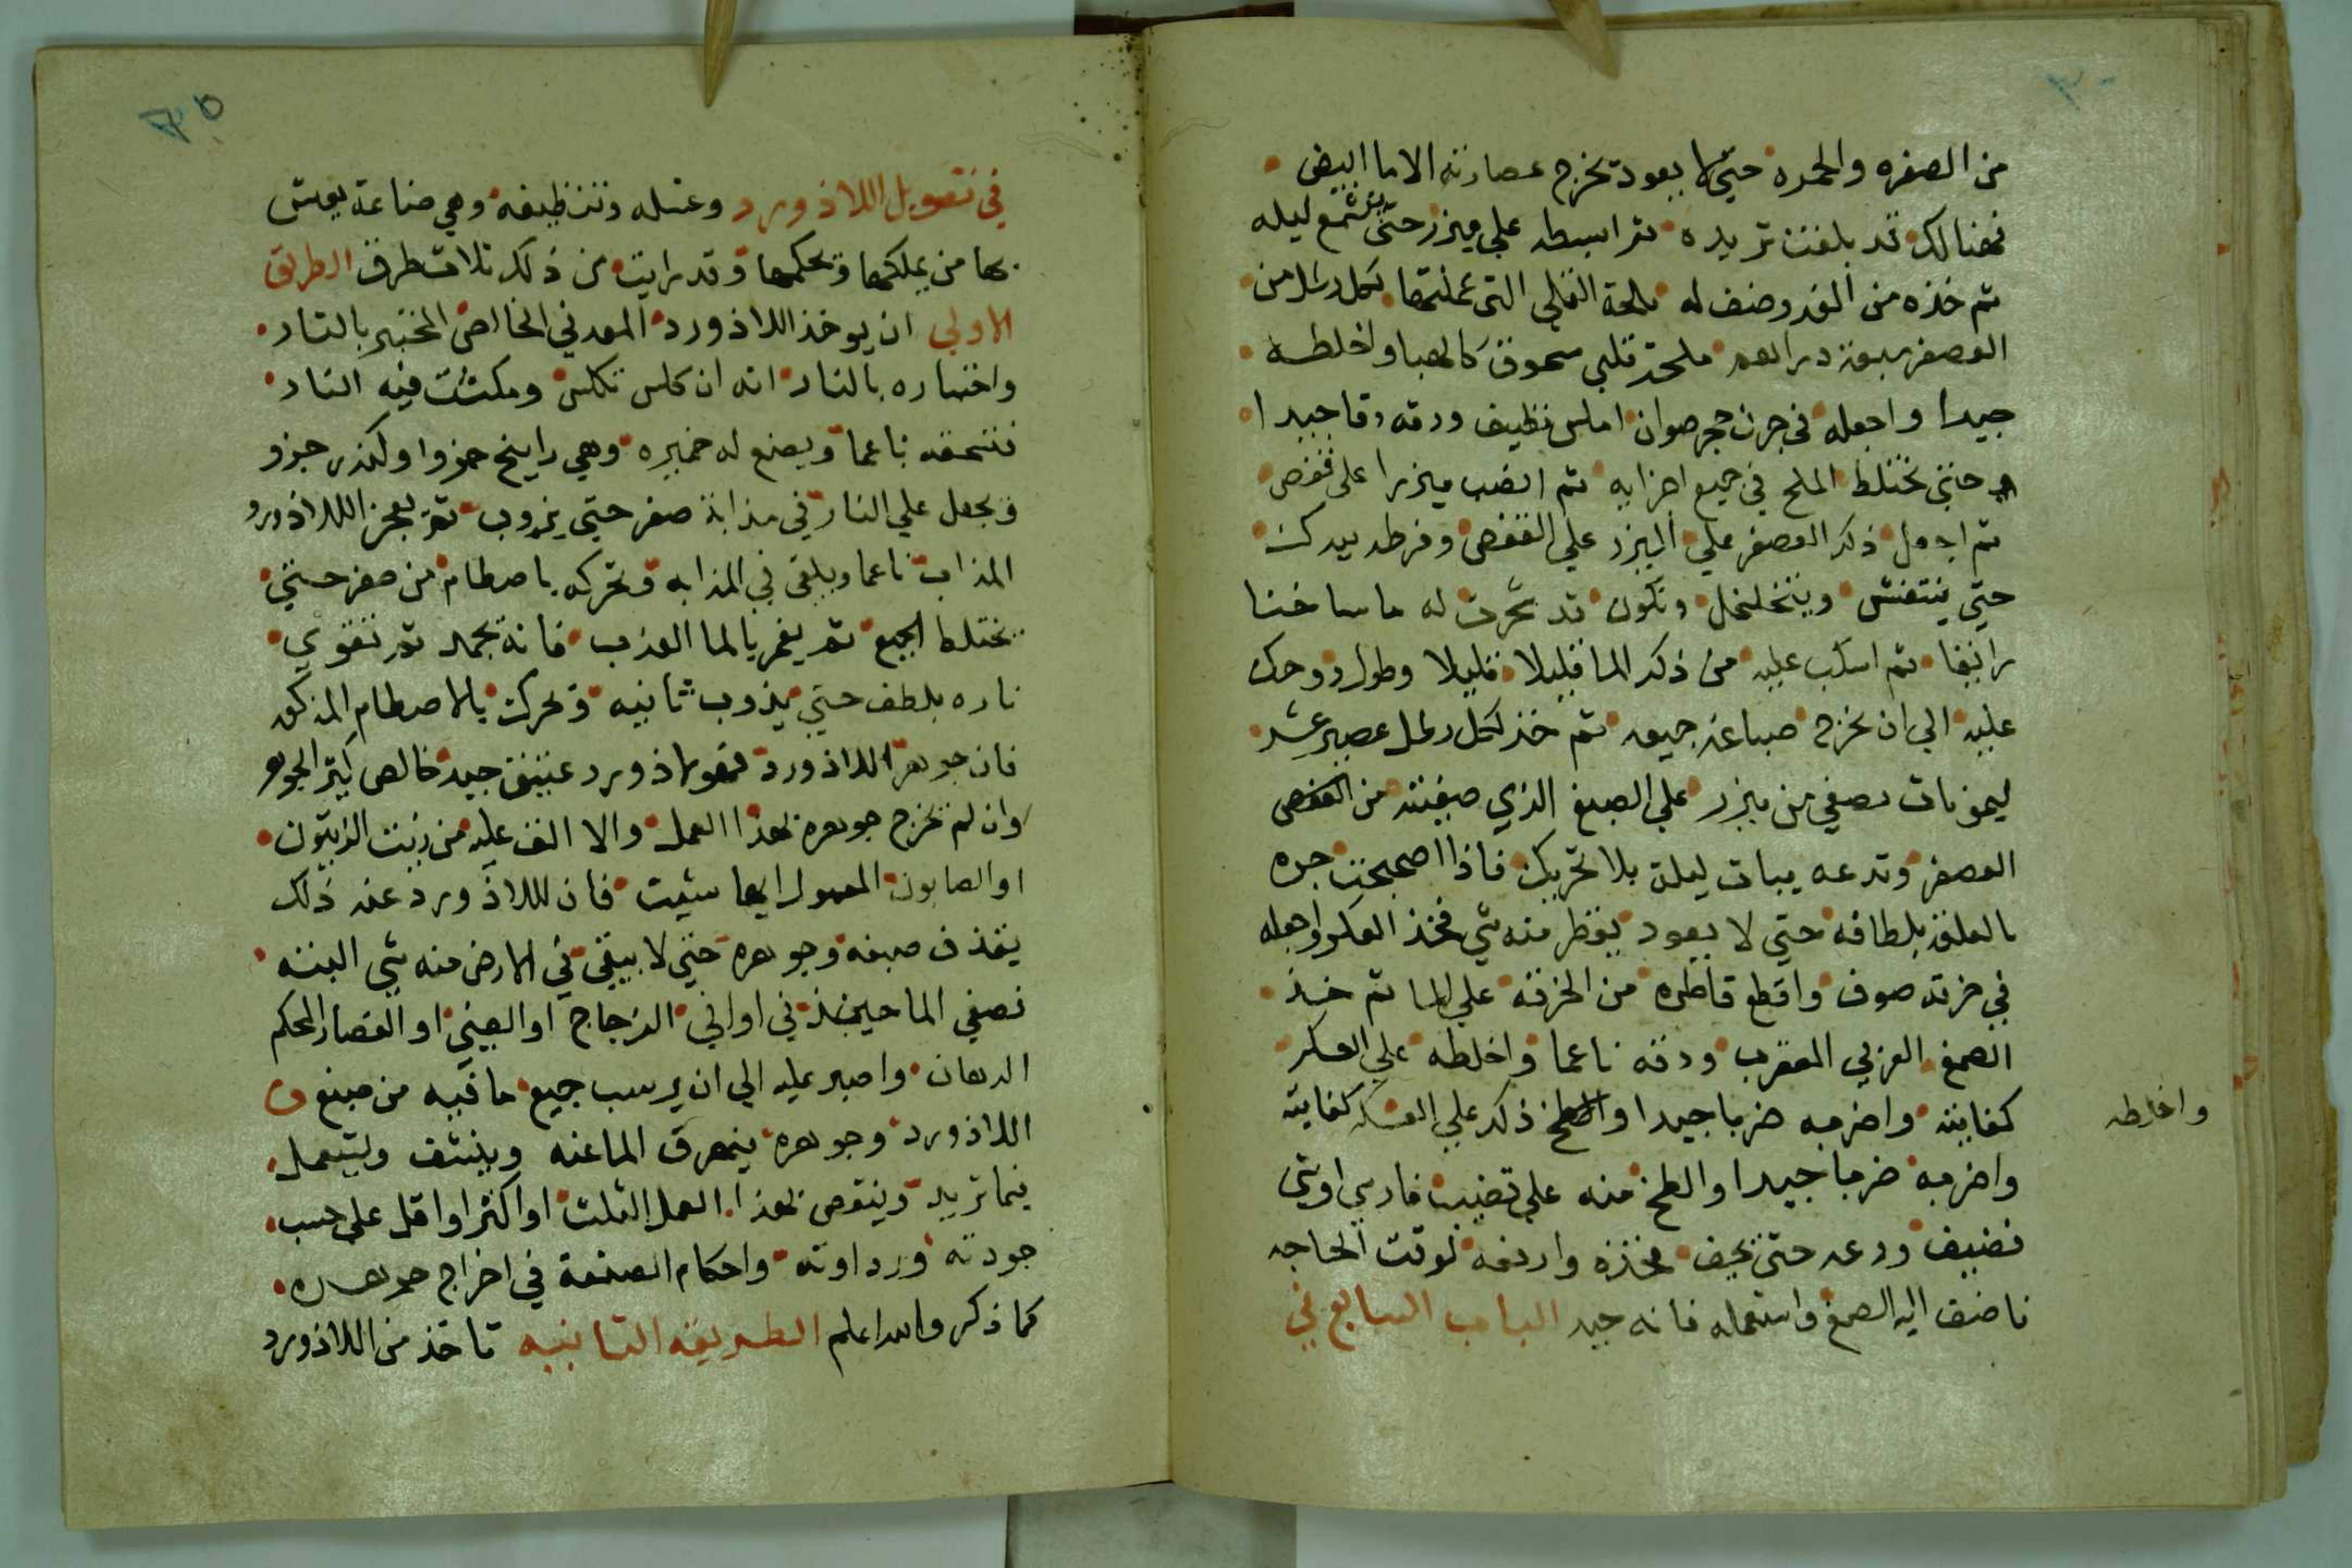 من الصفره والحمره حتى لا يعود تخرج عصارته الا ما ابيض
فهنالك قد بلغت تريده ثم ابسطه علي ميزر حتى ليله
ثم خذه من الغد وضف له ملحة القلي التى عملتها لكل رطل من
العصفر سبعة دراهم ملحة قلي مسحوق كالهبا واخلطه
جيدا واجعله في جرن حجر صوان املس نظيف ودقه دقا جيدا
حتى تختلط الملح في جميع اجزايه ثم انصب ميزرا على قفص
ثم اجعل ذلك العصفر علي الميزر علي القفص وفرطه بيدك
حتي ينتفش ويتخلخل وتكون قد له ما ساخنا
رايقا ثم اسكب عليه من ذلك الما قليلا قليلا وطول روحك
عليه الي ان يخرج صباغه جميعه ثم خذ لكل رطل عصير عشر
ليمونات تصفي من ميزر علي الصبغ الذي صفيته من
العصفر وتدعه يبات ليلة بلا تحريك فاذا اصبحت جره
بالعلقة بلطافه حتي لا يعود يقطر منه شي فخذ العكر واجعله
في خرقة صوف واقطع قاطره من الخرقه علي الما ثم خذ
الصمغ العربي المعقرب ودقه ناعما واخلطه علي العكر
كفايته واضربه ضربا جيدا ذلك علي العكر كفايته
واخلطه
واضربه ضربا جيدا والطخ منه علي قضيب فارسي اوشي
نضيف ودعه حتى يجف فخذه وارفعه لوقت الحاجه
فاضف اليه الصمغ واستعمله فانه جيد الباب السابع في
في تعويل اللاذورد وغسله وتنظيفه وهي صناعة يعيش
بها من يملكها ويحكمها وقد رايت من ذلك ثلاث طرق الطريق
الاولي ان يوخذ اللاذورد المعدني الخالص المختبر بالنار
واختباره بالنار انه ان كلس تكلس ومكثت فيه النار
فتسحقه ناعما ويصنع له خميره وهي راينج جزوا ولكندر جزو
ويجعل علي النار في مذابة صفر حتي يذوب ثم يعجن اللاذورد
المذاب ناعما ويلقى في المذابه وتحركه باصطام من صفر حتي
يختلط الجميع ثم يغمر بالما العذب فانه يجمد ثم تقوي
ناره بلطف حتي يذوب ثانيه وتحركت بالاصطام المذكور
فان جوهر اللاذورد فهو لاذورد عتيق جيد خالص كثير الجوهر
وان لم تخرج جوهره بهذا العمل والا الق عليه من زيت الزيتون
او الصابون المعمول ايها شيت فان لللاذورد عند ذلك
يقذف صبغه وجوهره حتي لا يبقي في الارض منه شي البته
نصفي الما حينئذ في اواني الزجاج او الصيني او الغضار المحكم
الدهان واصبر عليه الي ان يرسب جميع ما فيه من صبغ
اللاذورد وجوهره فيهرق الما عنه وينشف ويستعمل
فيما تريد وينقص بهذا العمل الثلث او اكثر او اقل على حسب
جودته ورداوته واحكام الصنعة في اخراج جوهره
كما ذكر والله اعلم الطريقه الثانيه تاخذ من اللاذورد